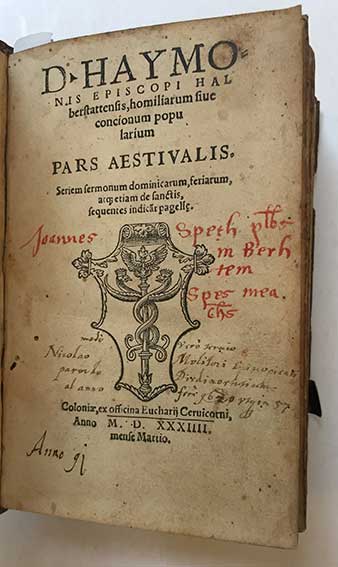 D. HAYMO-
NIS EPISCOPI HAL
berstattensis, homiliarum siue
concionum popu
larium
PARS AESTIVALIS.
Seriem sermonum dominicarum, feriarum,
atq; etiam de sanctis,
sequentes indicãt pagellę.
Joannes Speth plbs
in Berh
tem
Spes mea
Chs
Nicolao
parocho
al anno
Coloniæ, ex officina Eucharij Ceruicorni,
Anno M. D. XXXIIII.
mense Martio.
Anno 91